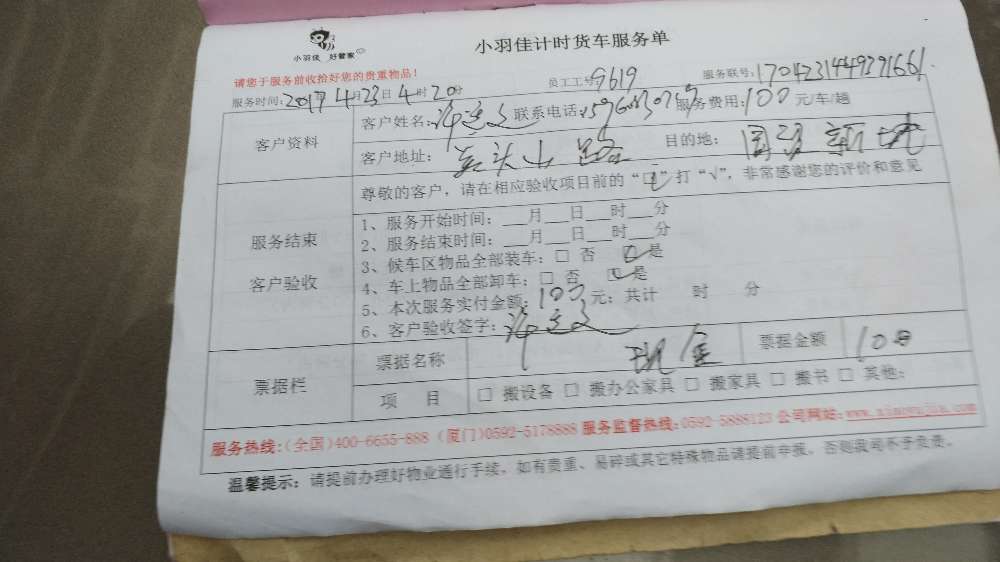 小羽佳 好管家
小羽佳计时货车服务单
请您于服务前收拾好您的贵重物品!
服务时间: 2017年 4月 23日 4时 20分 员工工号 9619 服务联号:
客户资料
客户姓名: 联系电话: 服务费用: 100 元/车/趟
客户地址: 目的地:
服务结束
客户验收
尊敬的客户,请在相应验收项目前的“□”打“√”,非常感谢您的评价和意见
1、服务开始时间: ___月___日___时___分
2、服务结束时间: ___月___日___时___分
3、候车区物品全部装车: □ 否 ☑ 是
4、车上物品全部卸车: □ 否 ☑ 是
5、本次服务实付金额: 100 元;共计 时 分
6、客户验收签字:
票据栏
票据名称 现金 票据金额 100
项 目 □ 搬设备 □ 搬办公家具 □ 搬家具 □ 搬书 □ 其他:
服务热线:(全国)400-6655-888 (厦门)0592-5178888 服务监督热线:0592-5888123 公司网站: www.xiaoyujia.com
温馨提示: 请提前办理好物业通行手续,如有贵重、易碎或其它特殊物品请提前申报,否则我司不予负责。